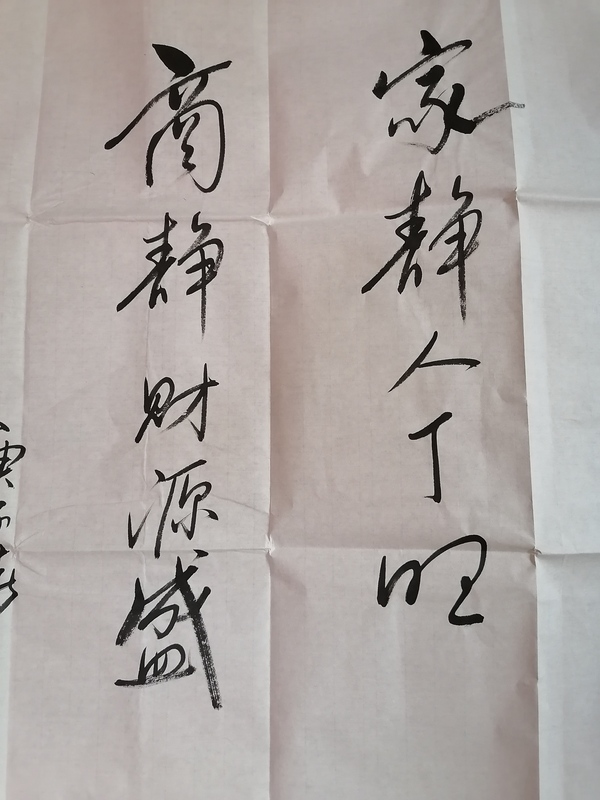 家静人丁旺
商静财源盛